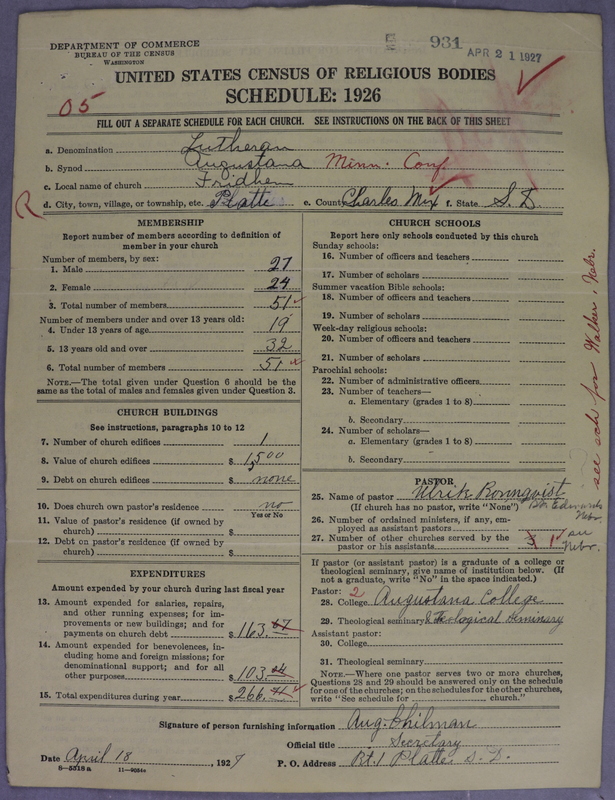 DEPARTMENT OF COMMERCE
BUREAU OF THE CENSUS
WASHINGTON
931
APR 21 1927
UNITED STATES CENSUS OF RELIGIOUS BODIES
SCHEDULE: 1926
05
FILL OUT A SEPARATE SCHEDULE FOR EACH CHURCH. SEE INSTRUCTIONS ON THE BACK OF THIS SHEET
a. Denomination Lutheran
b. Synod Augustana Minn. Conf
c. Local name of church Fridhem
R d. City, town, village, or township, etc. Platte e. County Charles Mix f. State S. D.
MEMBERSHIP
Report number of members according to definition of member in your church
Number of members, by sex:
1. Male 27
2. Female 24
3. Total number of members 51
Number of members under and over 13 years old:
4. Under 13 years of age 19
5. 13 years old and over 32
6. Total number of members 51
NOTE.—The total given under Question 6 should be the same as the total of males and females given under Question 3.
CHURCH BUILDINGS
See instructions, paragraphs 10 to 12
7. Number of church edifices 1
8. Value of church edifices $1,500
9. Debt on church edifices $ none
10. Does church own pastor's residence no
Yes or No
11. Value of pastor's residence (if owned by church) $
12. Debt on pastor's residence (if owned by church) $
EXPENDITURES
Amount expended by your church during last fiscal year
13. Amount expended for salaries, repairs, and other running expenses; for improvements or new buildings; and for payments on church debt $163.67
14. Amount expended for benevolences, including home and foreign missions; for denominational support; and for all other purposes $103.24
15. Total expenditures during year $266.
CHURCH SCHOOLS
Report here only schools conducted by this church
Sunday schools:
16. Number of officers and teachers
17. Number of scholars
Summer vacation Bible schools:
18. Number of officers and teachers
19. Number of scholars
Week-day religious schools:
20. Number of officers and teachers
21. Number of scholars
Parochial schools:
22. Number of administrative officers
23. Number of teachers—
a. Elementary (grades 1 to 8)
b. Secondary
24. Number of scholars—
a. Elementary (grades 1 to 8)
b. Secondary
see sch for Walker, Nebr.
PASTOR
25. Name of pastor Ulrik Ronnqvist
(If church has no pastor, write "None") Edwards Nebr.
26. Number of ordained ministers, if any, employed as assistant pastors
27. Number of other churches served by the pastor or his assistants 1 in Nebr.
If pastor (or assistant pastor) is a graduate of a college or theological seminary, give name of institution below. (If not a graduate, write "No" in the space indicated.)
Pastor: 2
28. College Augustana College
29. Theological seminary & Theological Seminary
Assistant pastor:
30. College
31. Theological seminary
NOTE.—Where one pastor serves two or more churches, Questions 28 and 29 should be answered only on the schedule for one of the churches; on the schedules for the other churches, write "See schedule for church."
Signature of person furnishing information Aug. Ohilman
Official title Secretary
Date April 18, 1927 P. O. Address Rt. 1 Platte, S. D.
8—5518a 11—9034